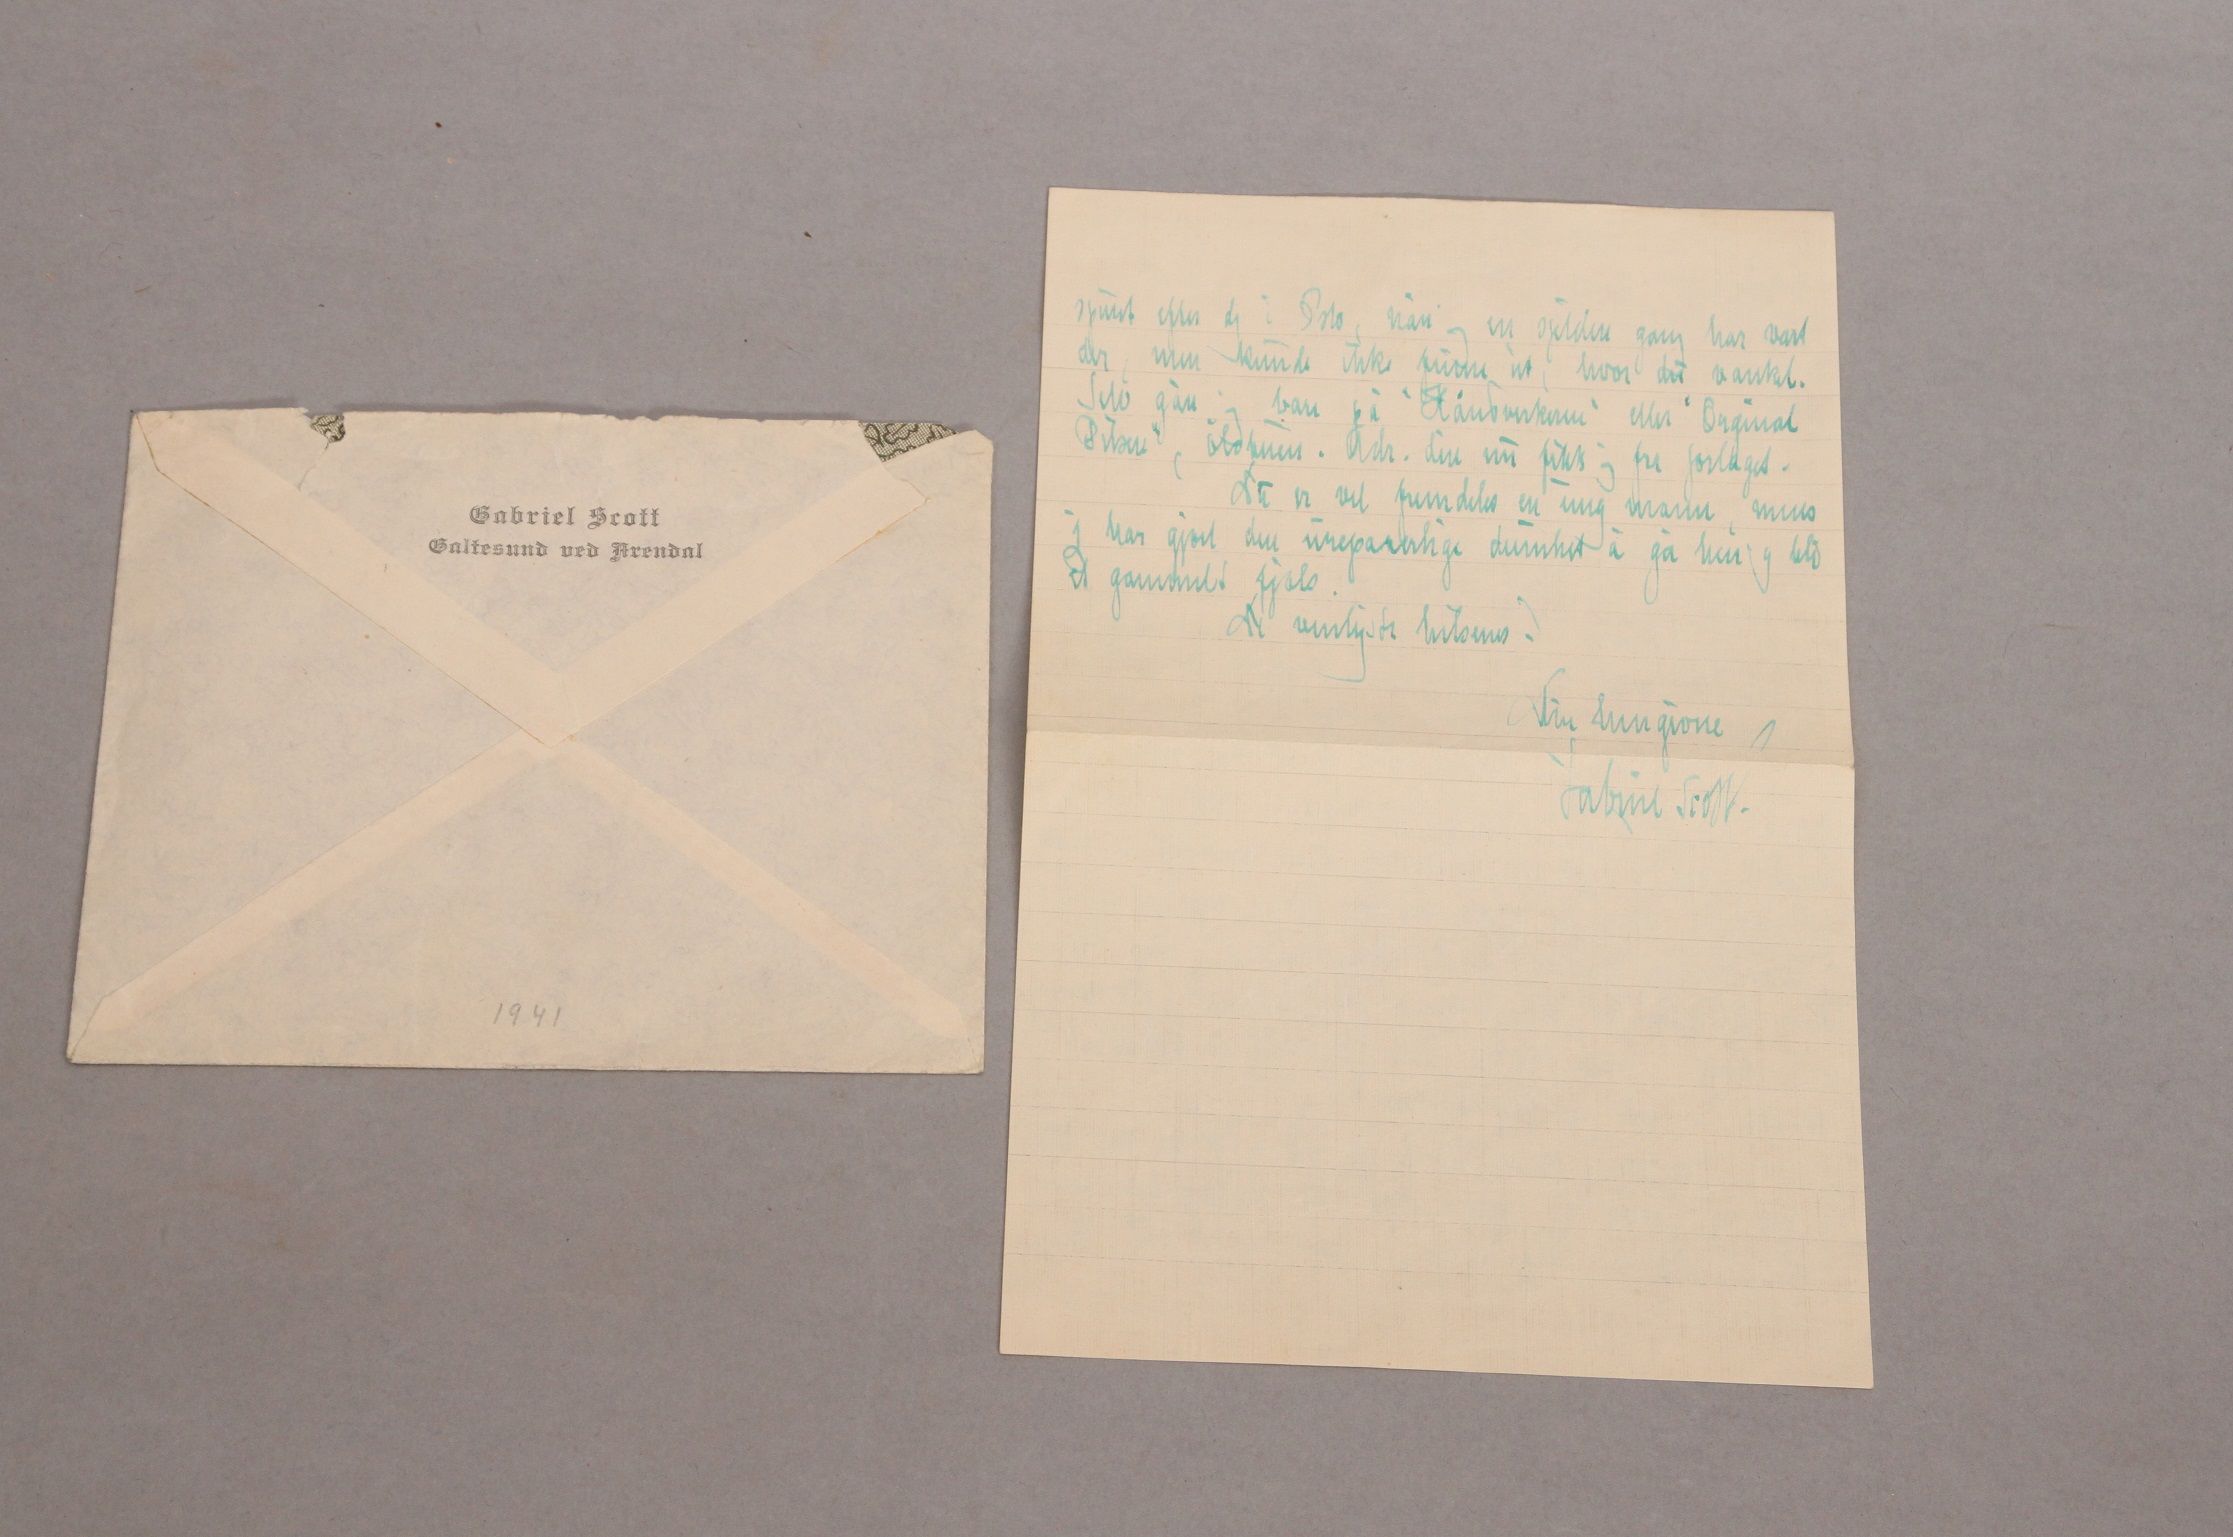 Gabriel Scott
Galtesund ved Arendal
1941
spurt efter dig i Oslo, når jeg en sjelden gang har vært
der, men kunde ikke finne ut, hvor du vanket.
Selv går jeg bare på "Håndverkeren" eller "Orginal
Pilsen", ølkneiper. Adr. din nu fikk jeg fra forlaget.
Du er vel fremdeles en ung mann, mens
jeg har gjort den ureparerlige dumhet å gå hen og bli
et gammelt fjols.
De venligste hilsener!
Din hengivne
Gabriel Scott.